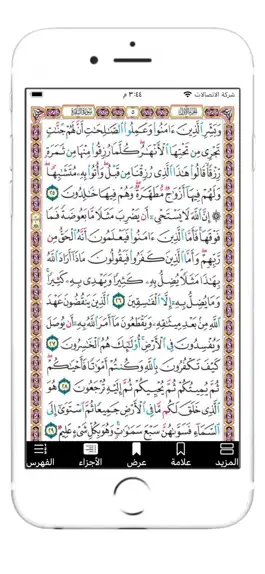 شركة الاتصالات
٣:٤٤ م
وَبَشِّرِ ٱلَّذِينَ ءَامَنُوا۟ وَعَمِلُوا۟ ٱلصَّٰلِحَٰتِ أَنَّ لَهُمْ جَنَّٰتٍ
تَجْرِى مِن تَحْتِهَا ٱلْأَنْهَٰرُ كُلَّمَا رُزِقُوا۟ مِنْهَا مِن ثَمَرَةٍ
رِّزْقًا قَالُوا۟ هَٰذَا ٱلَّذِى رُزِقْنَا مِن قَبْلُ وَأُتُوا۟ بِهِۦ مُتَشَٰبِهًا
وَلَهُمْ فِيهَآ أَزْوَٰجٌ مُّطَهَّرَةٌ وَهُمْ فِيهَا خَٰلِدُونَ ٢٥
۞ إِنَّ ٱللَّهَ لَا يَسْتَحْىِۦٓ أَن يَضْرِبَ مَثَلًا مَّا بَعُوضَةً فَمَا
فَوْقَهَا فَأَمَّا ٱلَّذِينَ ءَامَنُوا۟ فَيَعْلَمُونَ أَنَّهُ ٱلْحَقُّ مِن
رَّبِّهِمْ وَأَمَّا ٱلَّذِينَ كَفَرُوا۟ فَيَقُولُونَ مَاذَآ أَرَادَ ٱللَّهُ
بِهَٰذَا مَثَلًا يُضِلُّ بِهِۦ كَثِيرًا وَيَهْدِى بِهِۦ كَثِيرًا
وَمَا يُضِلُّ بِهِۦٓ إِلَّا ٱلْفَٰسِقِينَ ٢٦ ٱلَّذِينَ يَنقُضُونَ عَهْدَ
ٱللَّهِ مِنۢ بَعْدِ مِيثَٰقِهِۦ وَيَقْطَعُونَ مَآ أَمَرَ ٱللَّهُ بِهِۦٓ أَن يُوصَلَ
وَيُفْسِدُونَ فِى ٱلْأَرْضِ أُو۟لَٰٓئِكَ هُمُ ٱلْخَٰسِرُونَ ٢٧
كَيْفَ تَكْفُرُونَ بِٱللَّهِ وَكُنتُمْ أَمْوَٰتًا فَأَحْيَٰكُمْ
ثُمَّ يُمِيتُكُمْ ثُمَّ يُحْيِيكُمْ ثُمَّ إِلَيْهِ تُرْجَعُونَ ٢٨ هُوَ
ٱلَّذِى خَلَقَ لَكُم مَّا فِى ٱلْأَرْضِ جَمِيعًا ثُمَّ ٱسْتَوَىٰٓ إِلَى
ٱلسَّمَآءِ فَسَوَّىٰهُنَّ سَبْعَ سَمَٰوَٰتٍ وَهُوَ بِكُلِّ شَىْءٍ عَلِيمٌ ٢٩
المزيد
علامة
عرض
الأجزاء
الفهرس